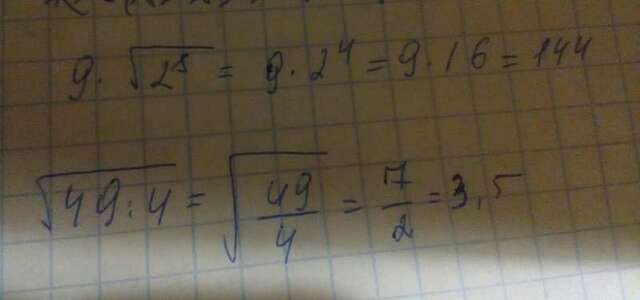 9 · √2⁸ = 9 · 2⁴ = 9 · 16 = 144
√49:4 = √49/4 = 7/2 = 3,5